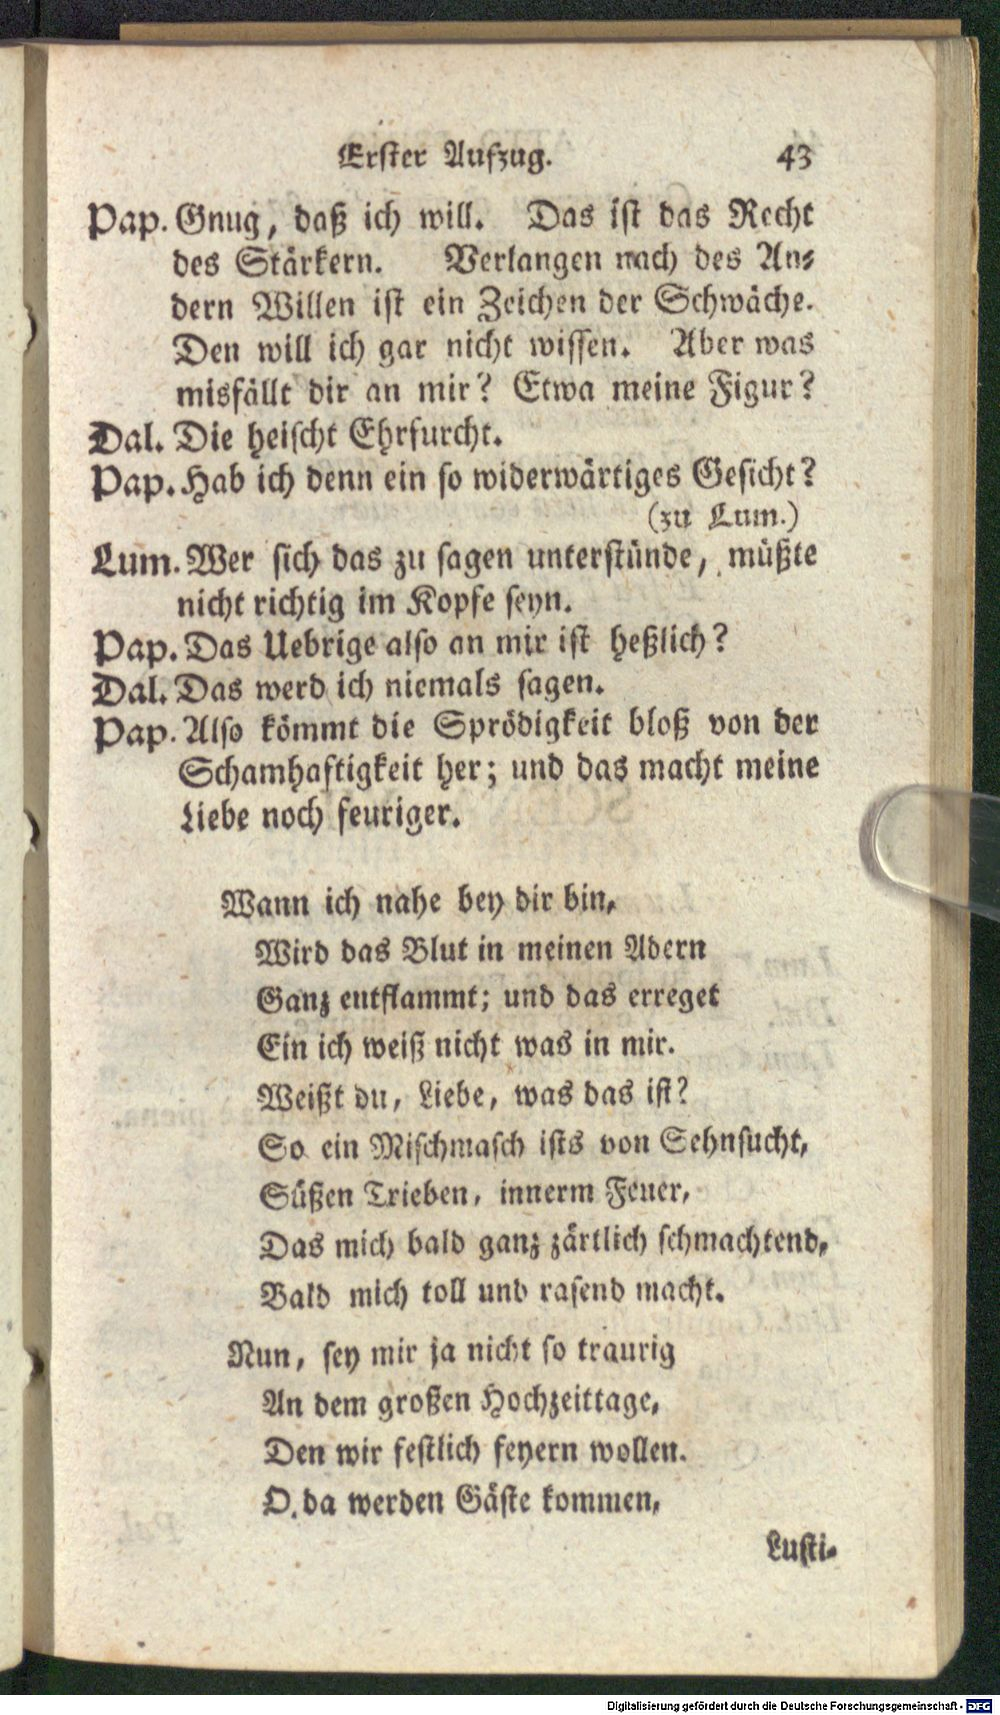 Erster Aufzug. 43
Pap. Gnug, daß ich will. Das ist das Recht
des Stärkern. Verlangen nach des An-
dern Willen ist ein Zeichen der Schwäche.
Den will ich gar nicht wissen. Aber was
misfällt dir an mir? Etwa meine Figur?
Dal. Die heischt Ehrfurcht.
Pap. Hab ich denn ein so widerwärtiges Gesicht?
(zu Lum.)
Lum. Wer sich das zu sagen unterstünde, müßte
nicht richtig im Kopfe seyn.
Pap. Das Uebrige also an mir ist heßlich?
Dal. Das werd ich niemals sagen.
Pap. Also kömmt die Sprödigkeit bloß von der
Schamhaftigkeit her; und das macht meine
Liebe noch feuriger.
Wann ich nahe bey dir bin,
Wird das Blut in meinen Adern
Ganz entflammt; und das erreget
Ein ich weiß nicht was in mir.
Weißt du, Liebe, was das ist?
So ein Mischmasch ists von Sehnsucht,
Süßen Trieben, innerm Feuer,
Das mich bald ganz zärtlich schmachtend,
Bald mich toll und rasend macht.
Nun, sey mir ja nicht so traurig
An dem großen Hochzeittage,
Den wir festlich feyern wollen.
O, da werden Gäste kommen,
Lusti-
Digitalisierung gefördert durch die Deutsche Forschungsgemeinschaft - DFG